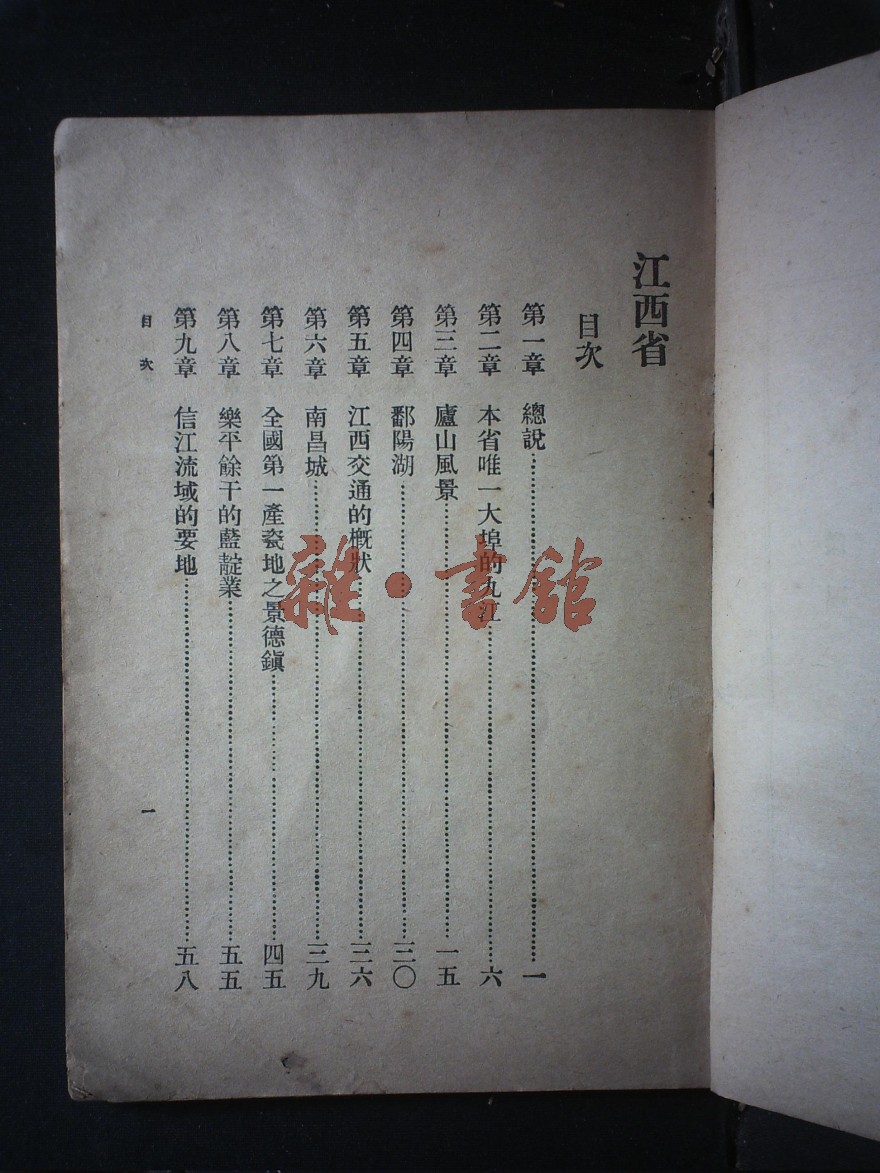 江西省
目次
第一章 總說……一
第二章 本省唯一大埠的九江……六
第三章 廬山風景……一五
第四章 鄱陽湖……三〇
第五章 江西交通的概狀……三六
第六章 南昌城……三九
第七章 全國第一產瓷地之景德鎭……四五
第八章 樂平餘干的藍靛業……五五
第九章 信江流域的要地……五八
目次 一
雜·書館